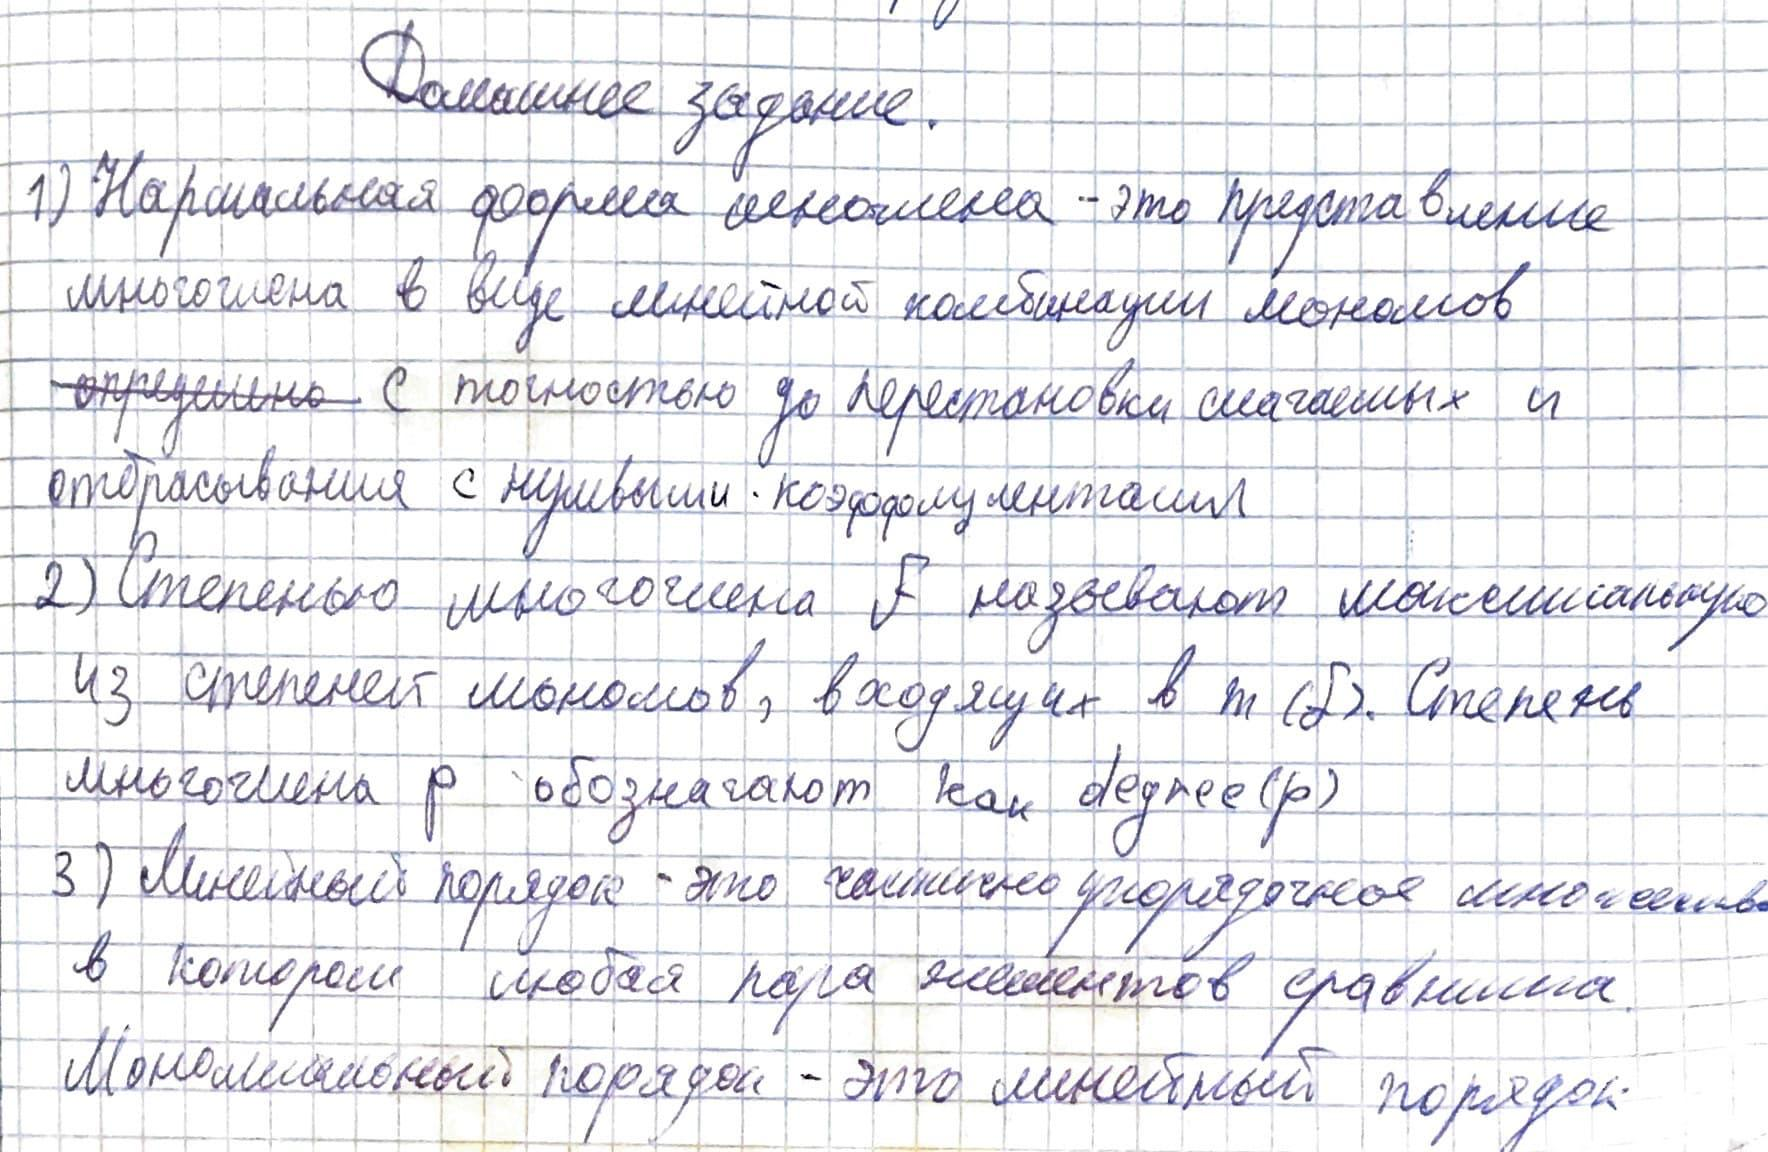 Домашнее задание.
1) Нормальная форма многочлена - это представление
многочлена в виде линейной комбинации мономов
определено с точностью до перестановки слагаемых и
отбрасывания с нулевыми коэффициентами
2) Степенью многочлена F называют максимальную
из степеней мономов, входящих в m (f). Степень
многочлена p обозначают как degree(p)
3) Линейный порядок - это частично упорядочное множество
в котором любая пара элементов сравнима.
Мономиальный порядок - это линейный порядок